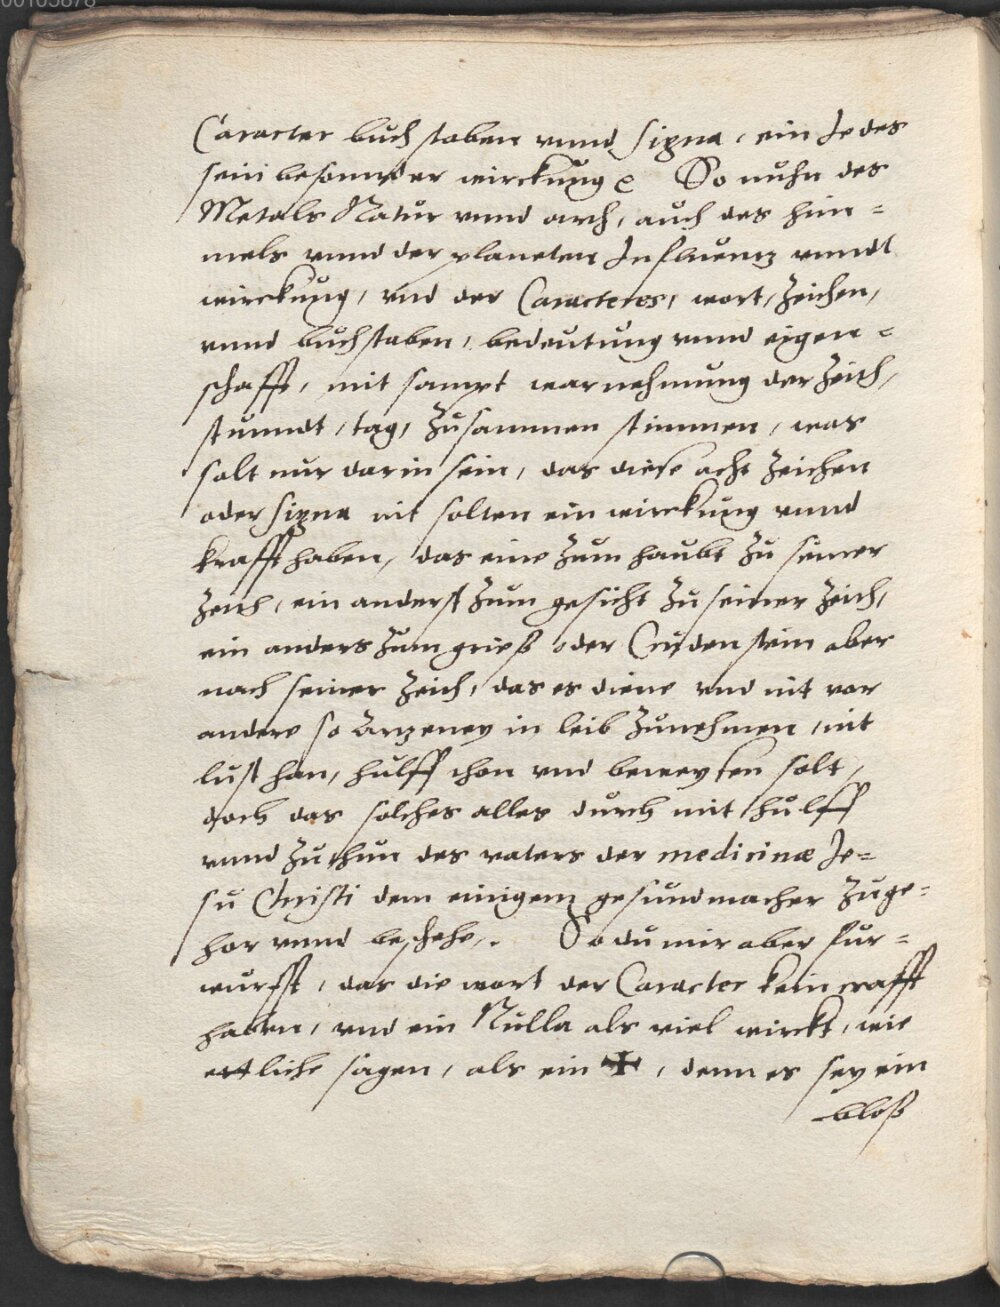 00105878
Caracter buchstaben vnnd Signa, ein Jedes
sein besonnder wirckunge So nuhn des
Metals Natur vnnd arth, auch des him=
mels vnnd der planeten Influentz vnndt
wirckung, vnd der Caracteres, wort, Zeichen,
vnnd buchstaben, bedeutung vnnd eigen=
schafft, mit sampt warnehmung der Zeith,
stunndt, tag, Zusammen stimmen, was
solt nur darin sein, das diese acht Zeichen
oder Signa nit solten ein wirckung vnnd
krafft haben, das eine Zum haubt Zu seiner
Zeith, ein anderst Zum gesicht Zu seiner Zeith,
ein anders Zum grieß oder stein aber
nach seiner Zeith, das es diene vnd nit vor
andere so Artzeney in leib Zunehmen, nit
lust han, hülff thon vnd beweysen solt,
doch das solches alles durch mit hülff
vnnd Zuthun des vaters der medicinæ Je=
su Christi dem einigem gesundmacher Zuge=
hor vnnd beschehe,. So du mir aber fur=
wurfst, das die wort der Caracter kein crafft
haben, vnd ein Nulla als viel wirckt, wie
ettliche sagen, als ein ✠, denn es sey ein
bloß